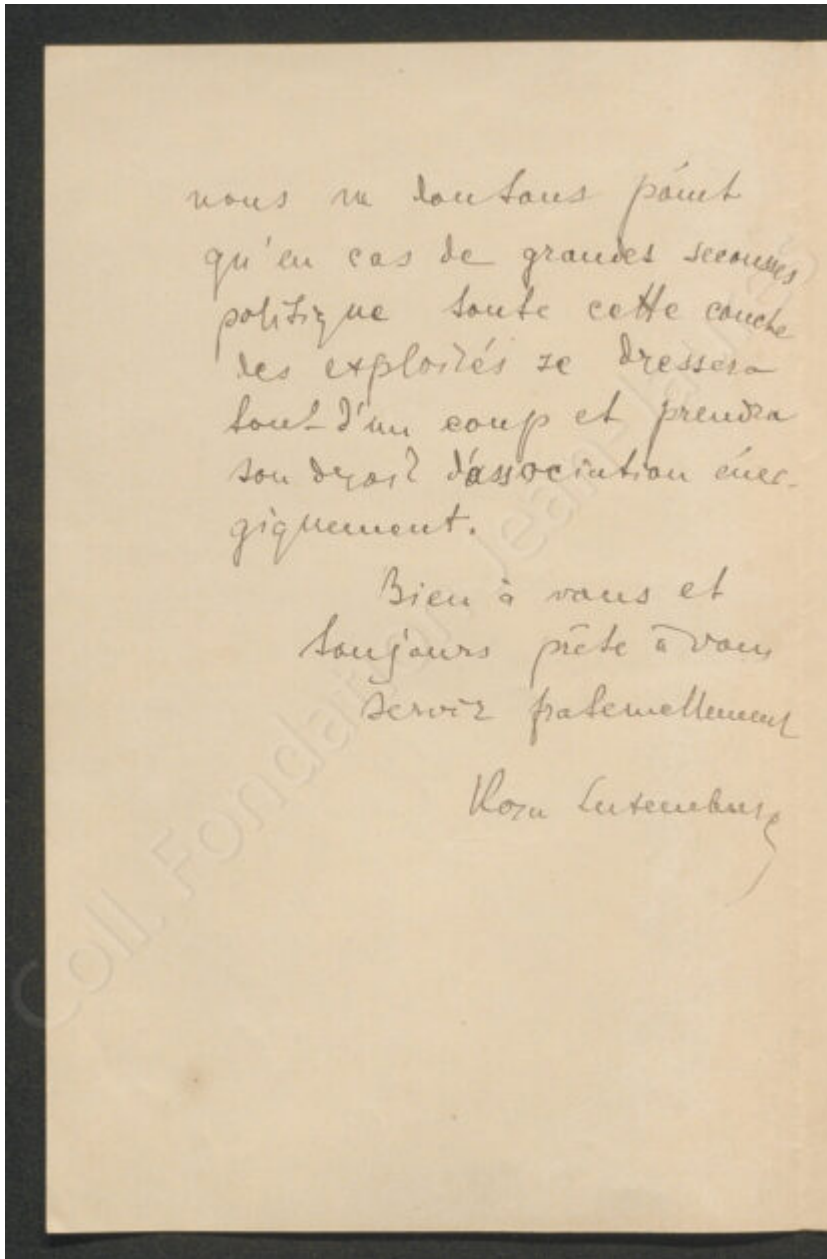 nous ne doutons point
qu'en cas de grandes secousses
politique toute cette couche
des exploités se dressera
tout d'un coup et prendra
son droit d'association éner-
giquement.
Bien à vous et
toujours prête à vous
servir fraternellement
Rosa Luxemburg
Coll. Fondation Jean-Jaurès